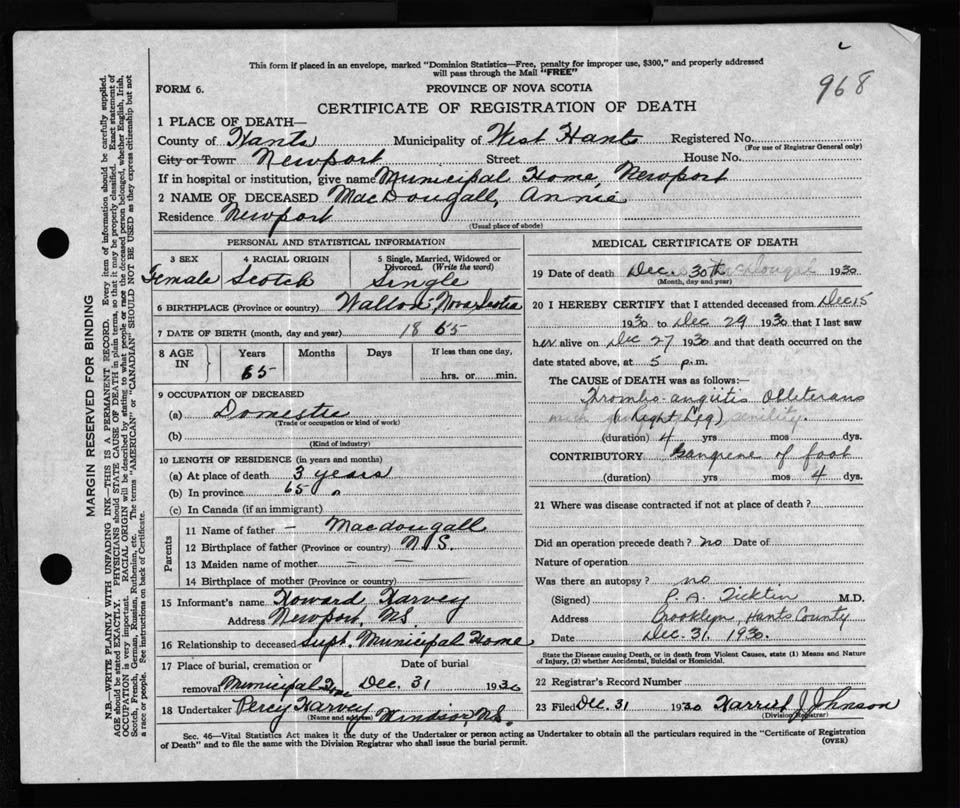 968
This form if placed in an envelope, marked "Dominion Statistics—Free, penalty for improper use, $300," and properly addressed
will pass through the Mail "FREE"
FORM 6.
PROVINCE OF NOVA SCOTIA
CERTIFICATE OF REGISTRATION OF DEATH
1 PLACE OF DEATH—
County of Hants Municipality of West Hants Registered No.
(For use of Registrar General only)
City or Town Newport Street House No.
If in hospital or institution, give name Municipal Home, Newport
2 NAME OF DECEASED MacDougall, Annie
Residence Newport
(Usual place of abode)
PERSONAL AND STATISTICAL INFORMATION
3 SEX 4 RACIAL ORIGIN 5 Single, Married, Widowed or
Divorced. (Write the word)
Female Scotch Single
6 BIRTHPLACE (Province or country) Walton, Nova Scotia
7 DATE OF BIRTH (month, day and year) 1865
8 AGE IN Years Months Days If less than one day,
65 hrs. or min.
9 OCCUPATION OF DECEASED
(a) Domestic
(Trade or occupation or kind of work)
(b)
(Kind of industry)
10 LENGTH OF RESIDENCE (in years and months)
(a) At place of death 3 years
(b) In province 65 "
(c) In Canada (if an immigrant)
Parents
11 Name of father — Macdougall
12 Birthplace of father (Province or country) N.S.
13 Maiden name of mother — —
14 Birthplace of mother (Province or country) —
15 Informant's name Howard Harvey
Address Newport, N.S.
16 Relationship to deceased Supt. Municipal Home
17 Place of burial, cremation or Date of burial
removal Municipal Home Dec. 31 1930
18 Undertaker Percy Harvey Windsor, N.S.
(Name and address)
MEDICAL CERTIFICATE OF DEATH
19 Date of death Dec. 30th 1930
(Month, day and year)
20 I HEREBY CERTIFY that I attended deceased from Dec 15
1930 to Dec 29 1930 that I last saw
her alive on Dec 27 1930 and that death occurred on the
date stated above, at 5 p.m.
The CAUSE of DEATH was as follows:—
Thrombo-angiitis Obliterans
(Right Leg) senility
(duration) 4 yrs mos dys.
CONTRIBUTORY Gangrene of foot
(duration) yrs mos 4 dys.
21 Where was disease contracted if not at place of death?
Did an operation precede death? no Date of
Nature of operation
Was there an autopsy? no
(Signed) P. A. Ticktin M.D.
Address Brooklyn, Hants County
Date Dec. 31, 1930.
State the Disease causing Death, or in death from Violent Causes, state (1) Means and Nature
of Injury, (2) whether Accidental, Suicidal or Homicidal.
22 Registrar's Record Number
23 Filed Dec 31 1930 Harriet J Johnson
(Division Registrar)
Sec. 46—Vital Statistics Act makes it the duty of the Undertaker or person acting as Undertaker to obtain all the particulars required in the "Certificate of Registration
of Death" and to file the same with the Division Registrar who shall issue the burial permit.
(OVER)
MARGIN RESERVED FOR BINDING
N.B.—WRITE PLAINLY WITH UNFADING INK—THIS IS A PERMANENT RECORD. Every item of information should be carefully supplied.
AGE should be stated EXACTLY. PHYSICIANS should STATE CAUSE OF DEATH in plain terms, so that it may be properly classified. Exact statement of
OCCUPATION is very important. RACIAL ORIGIN will be described by stating to what people or race the deceased person belonged, whether English, Irish,
Scotch, French, German, Russian, Ruthenian, etc. The terms "AMERICAN" or "CANADIAN" SHOULD NOT BE USED as they express citizenship but not
a race or people. See instructions on back of Certificate.